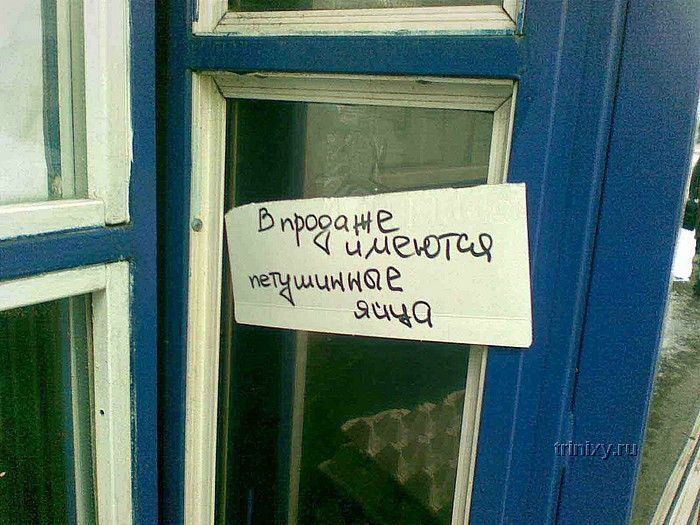 В продаже
имеются
петушинные
яйца
trinixy.ru